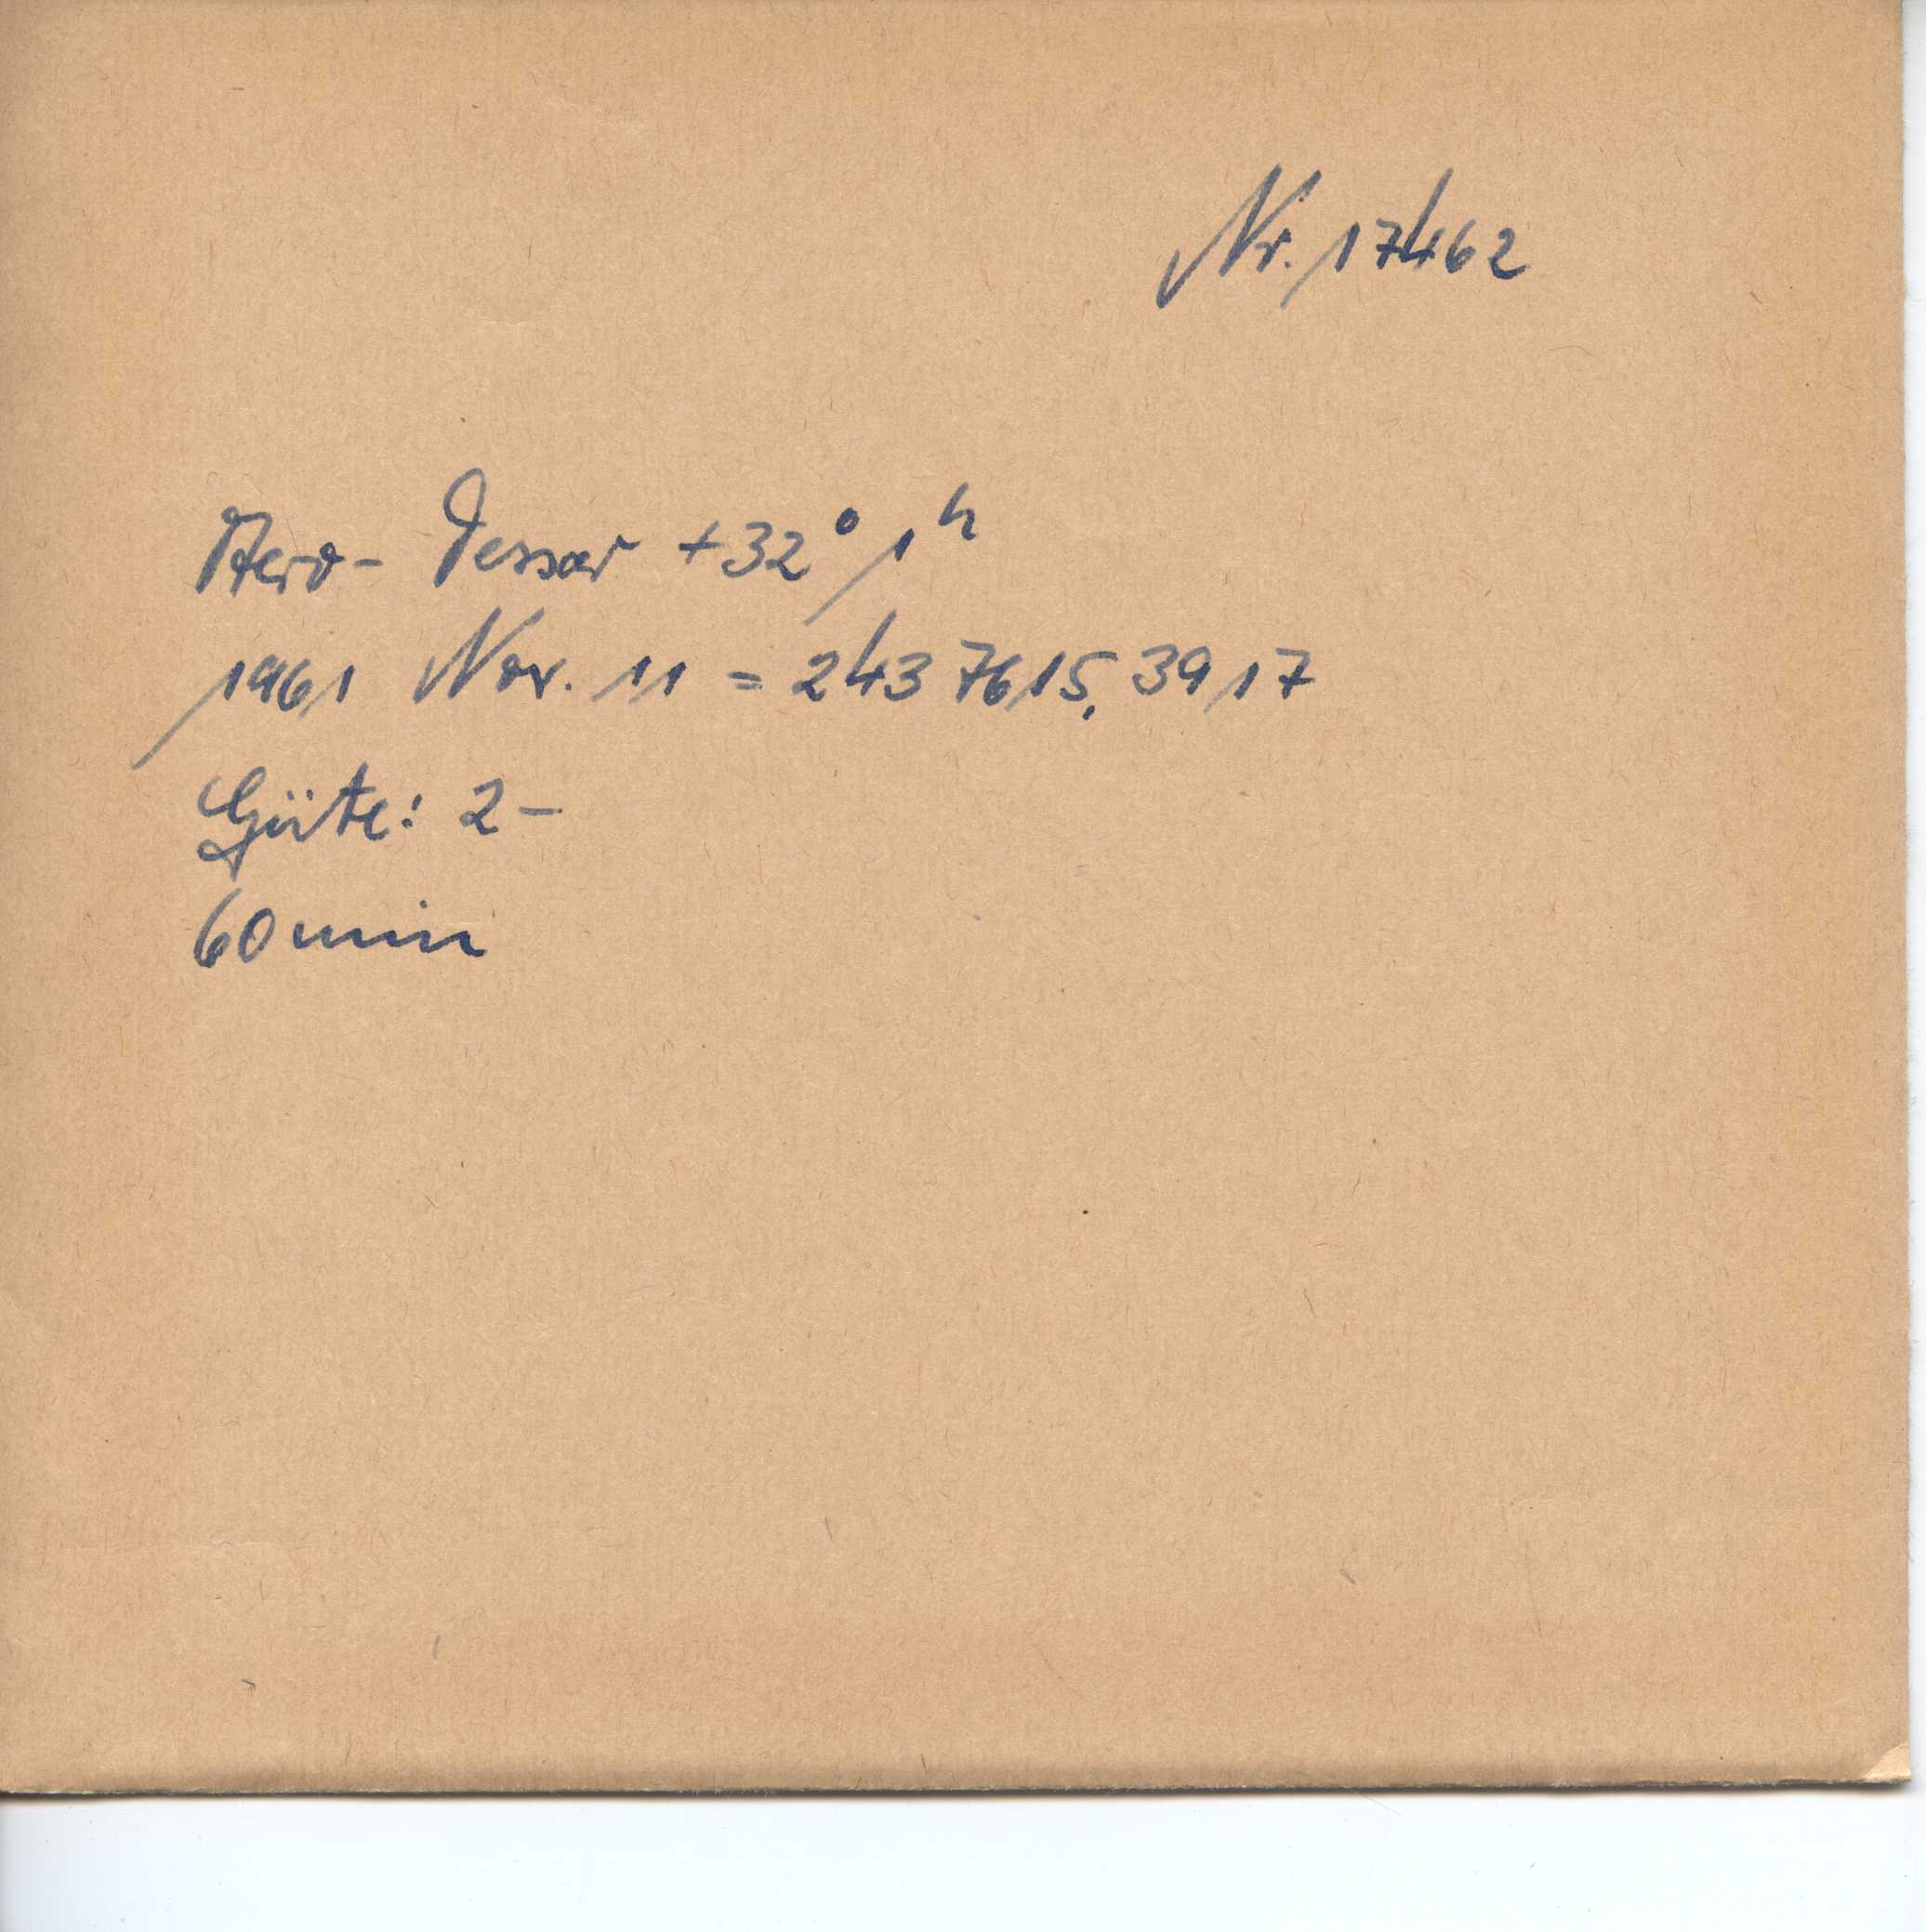 Nr. 17462
Aero-Tessar +32° 1h
1961 Nov. 11 = 243 7615,3917
Güte: 2-
60 min